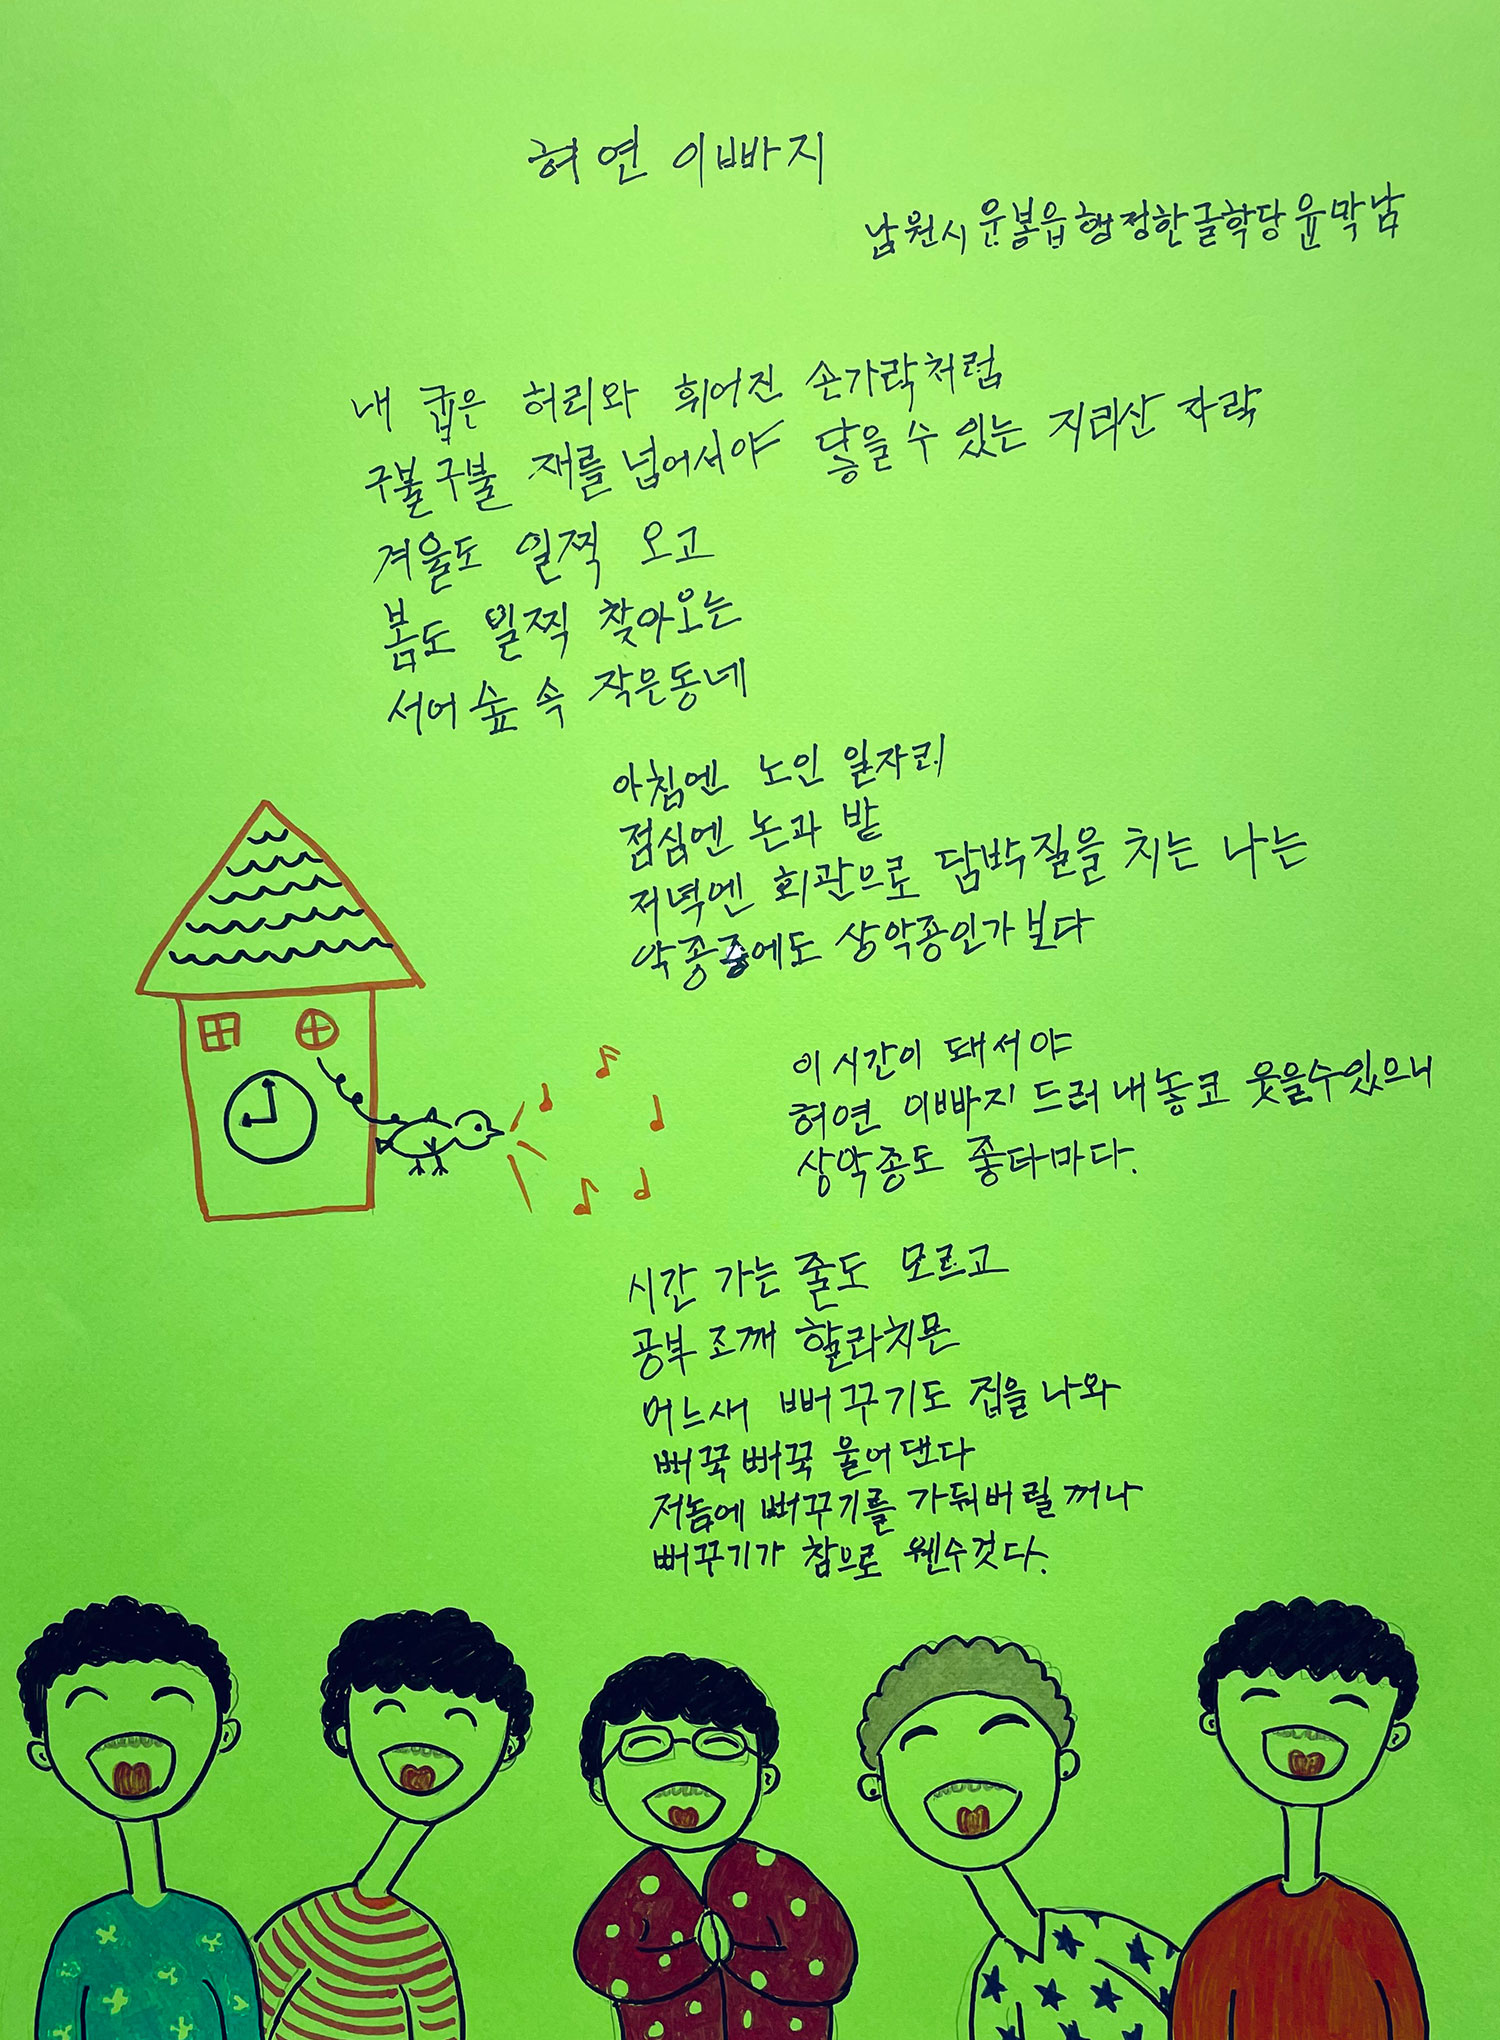 허연 이빠지
남원시 운봉읍 행정한글학당 윤막남
내 굽은 허리와 휘어진 손가락처럼
구불구불 재를 넘어서야 닿을 수 있는 지리산 자락
겨울도 일찍 오고
봄도 일찍 찾아오는
서어숲 속 작은동네
아침엔 노인 일자리
점심엔 논과 밭
저녁엔 회관으로 담박질을 치는 나는
악종중에도 상악종인가보다
이시간이 돼서야
허연 이빠지 드러내놓코 웃을수있으니
상악종도 좋다마다.
시간 가는 줄도 모르고
공부 조깨 할라치믄
어느새 뻐꾸기도 집을 나와
뻐꾹뻐꾹 울어댄다
저놈에 뻐꾸기를 가둬버릴꺼나
뻐꾸기가 참으로 웬수것다.